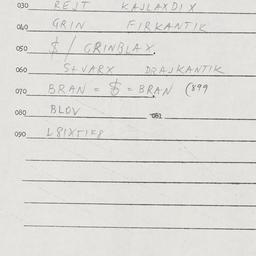 030 REJT KAJLAXDIX
040 GRIN FIRKANTIK
050 $ / GRINBLAX.
060 StVARX DRAJKANTIK
070 BRAN = $ = BRAN (899
080 BLOV 081
090